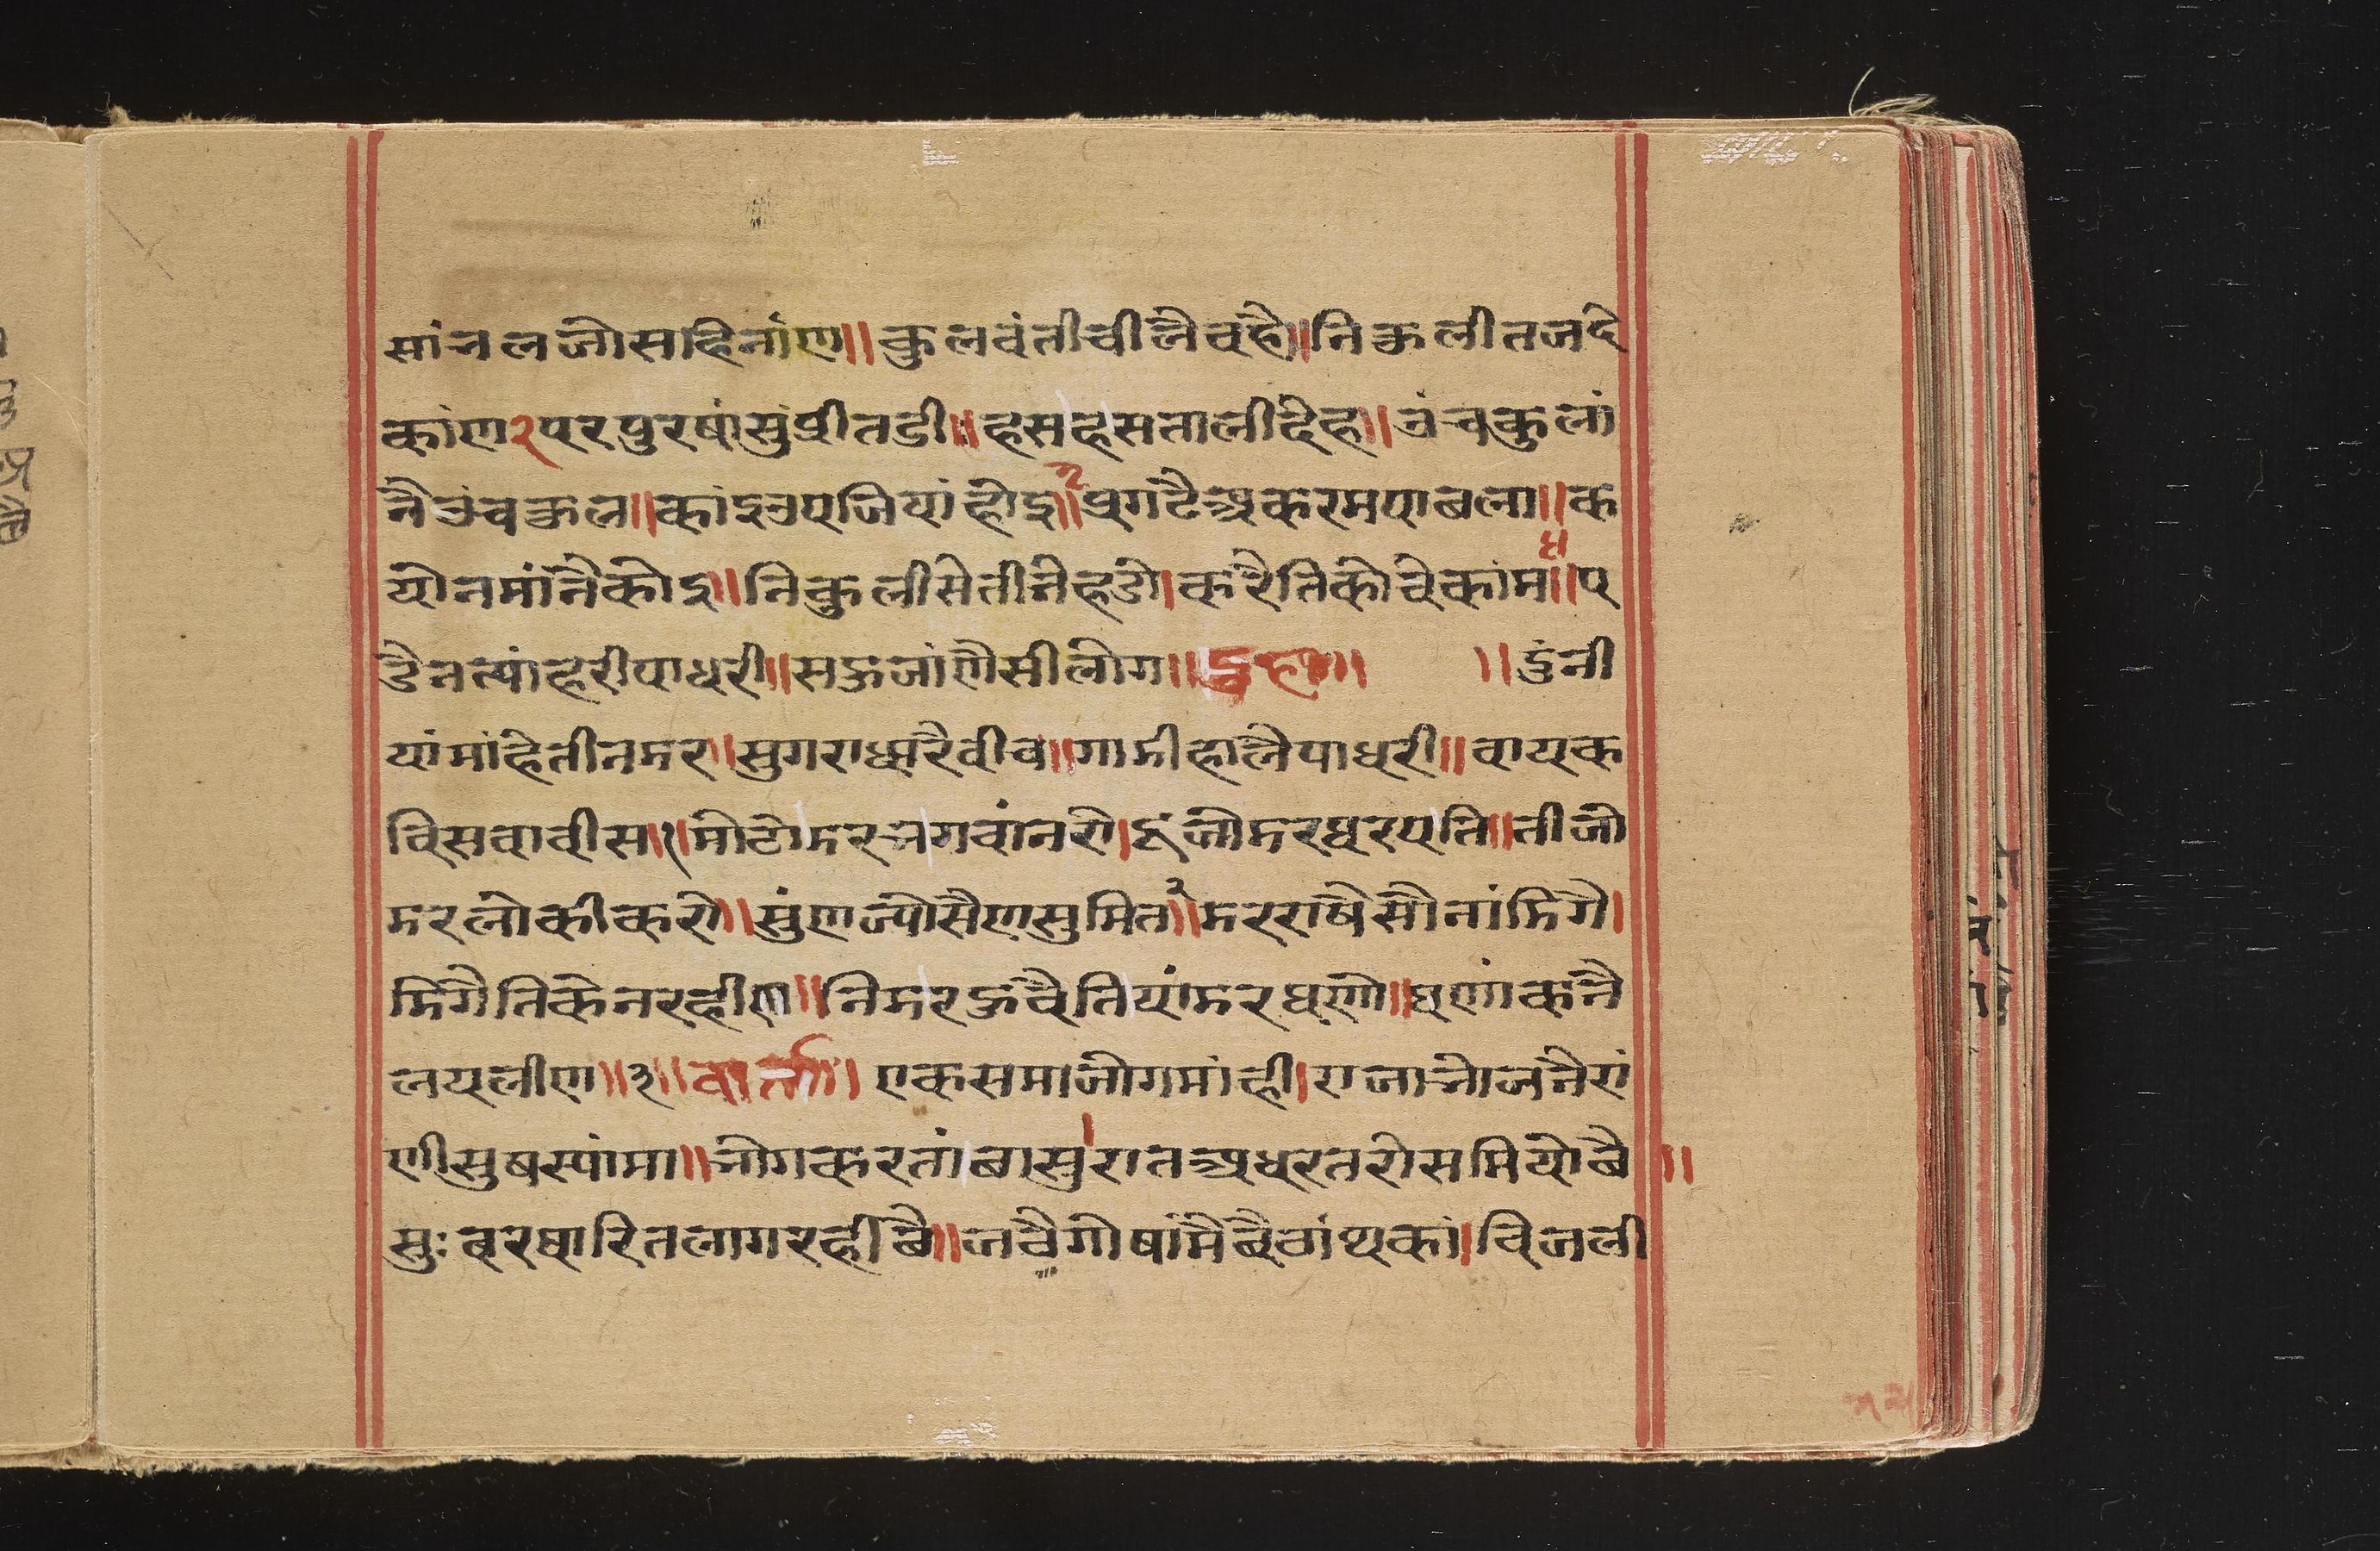 सांनलजोसहिनांण॥कुलवंतीचीलैवहै॥निकलीतजदे
कांण२परपुरषांसुंप्रीतडी॥हसहसतालीदेह॥उंचकुलां
नैउंचकल॥कांइउपजियांहोइ॥३प्रगटैअकरमपाबला॥क
योनमांनैकोइ॥निकुलीसेतीनेहडो।करैतिकोवेकांम॥४प
डैनत्यांहरीपाधरी॥सऊजांणैसीलोग॥दुहा॥ ॥डुंनी
यांमांहेतीनमर॥सुगराधारैवीच॥गामीहालैपाधरी॥वायक
विसवावीस।१।मोटोमरभगवांनरो।दूजोमरधरपति॥तीजो
मरलोकीकरो॥सुंणज्योसैणसुमित॥२मरराषैसौनांमिगै।
मिगैतिकेनरहीण॥निमरऊवैतियांमरघणो॥घणांकनै
लयलीण॥३॥वार्ता॥एकसमाजोगमांही।राजाभोजनैरां
णीसुषस्यांमा॥भोगकरतांबासुरातअधरतरोसमियोबै॥
सुःबरषारितलागरहीबै॥जवैगोषांमैबैठांथकां।विजली